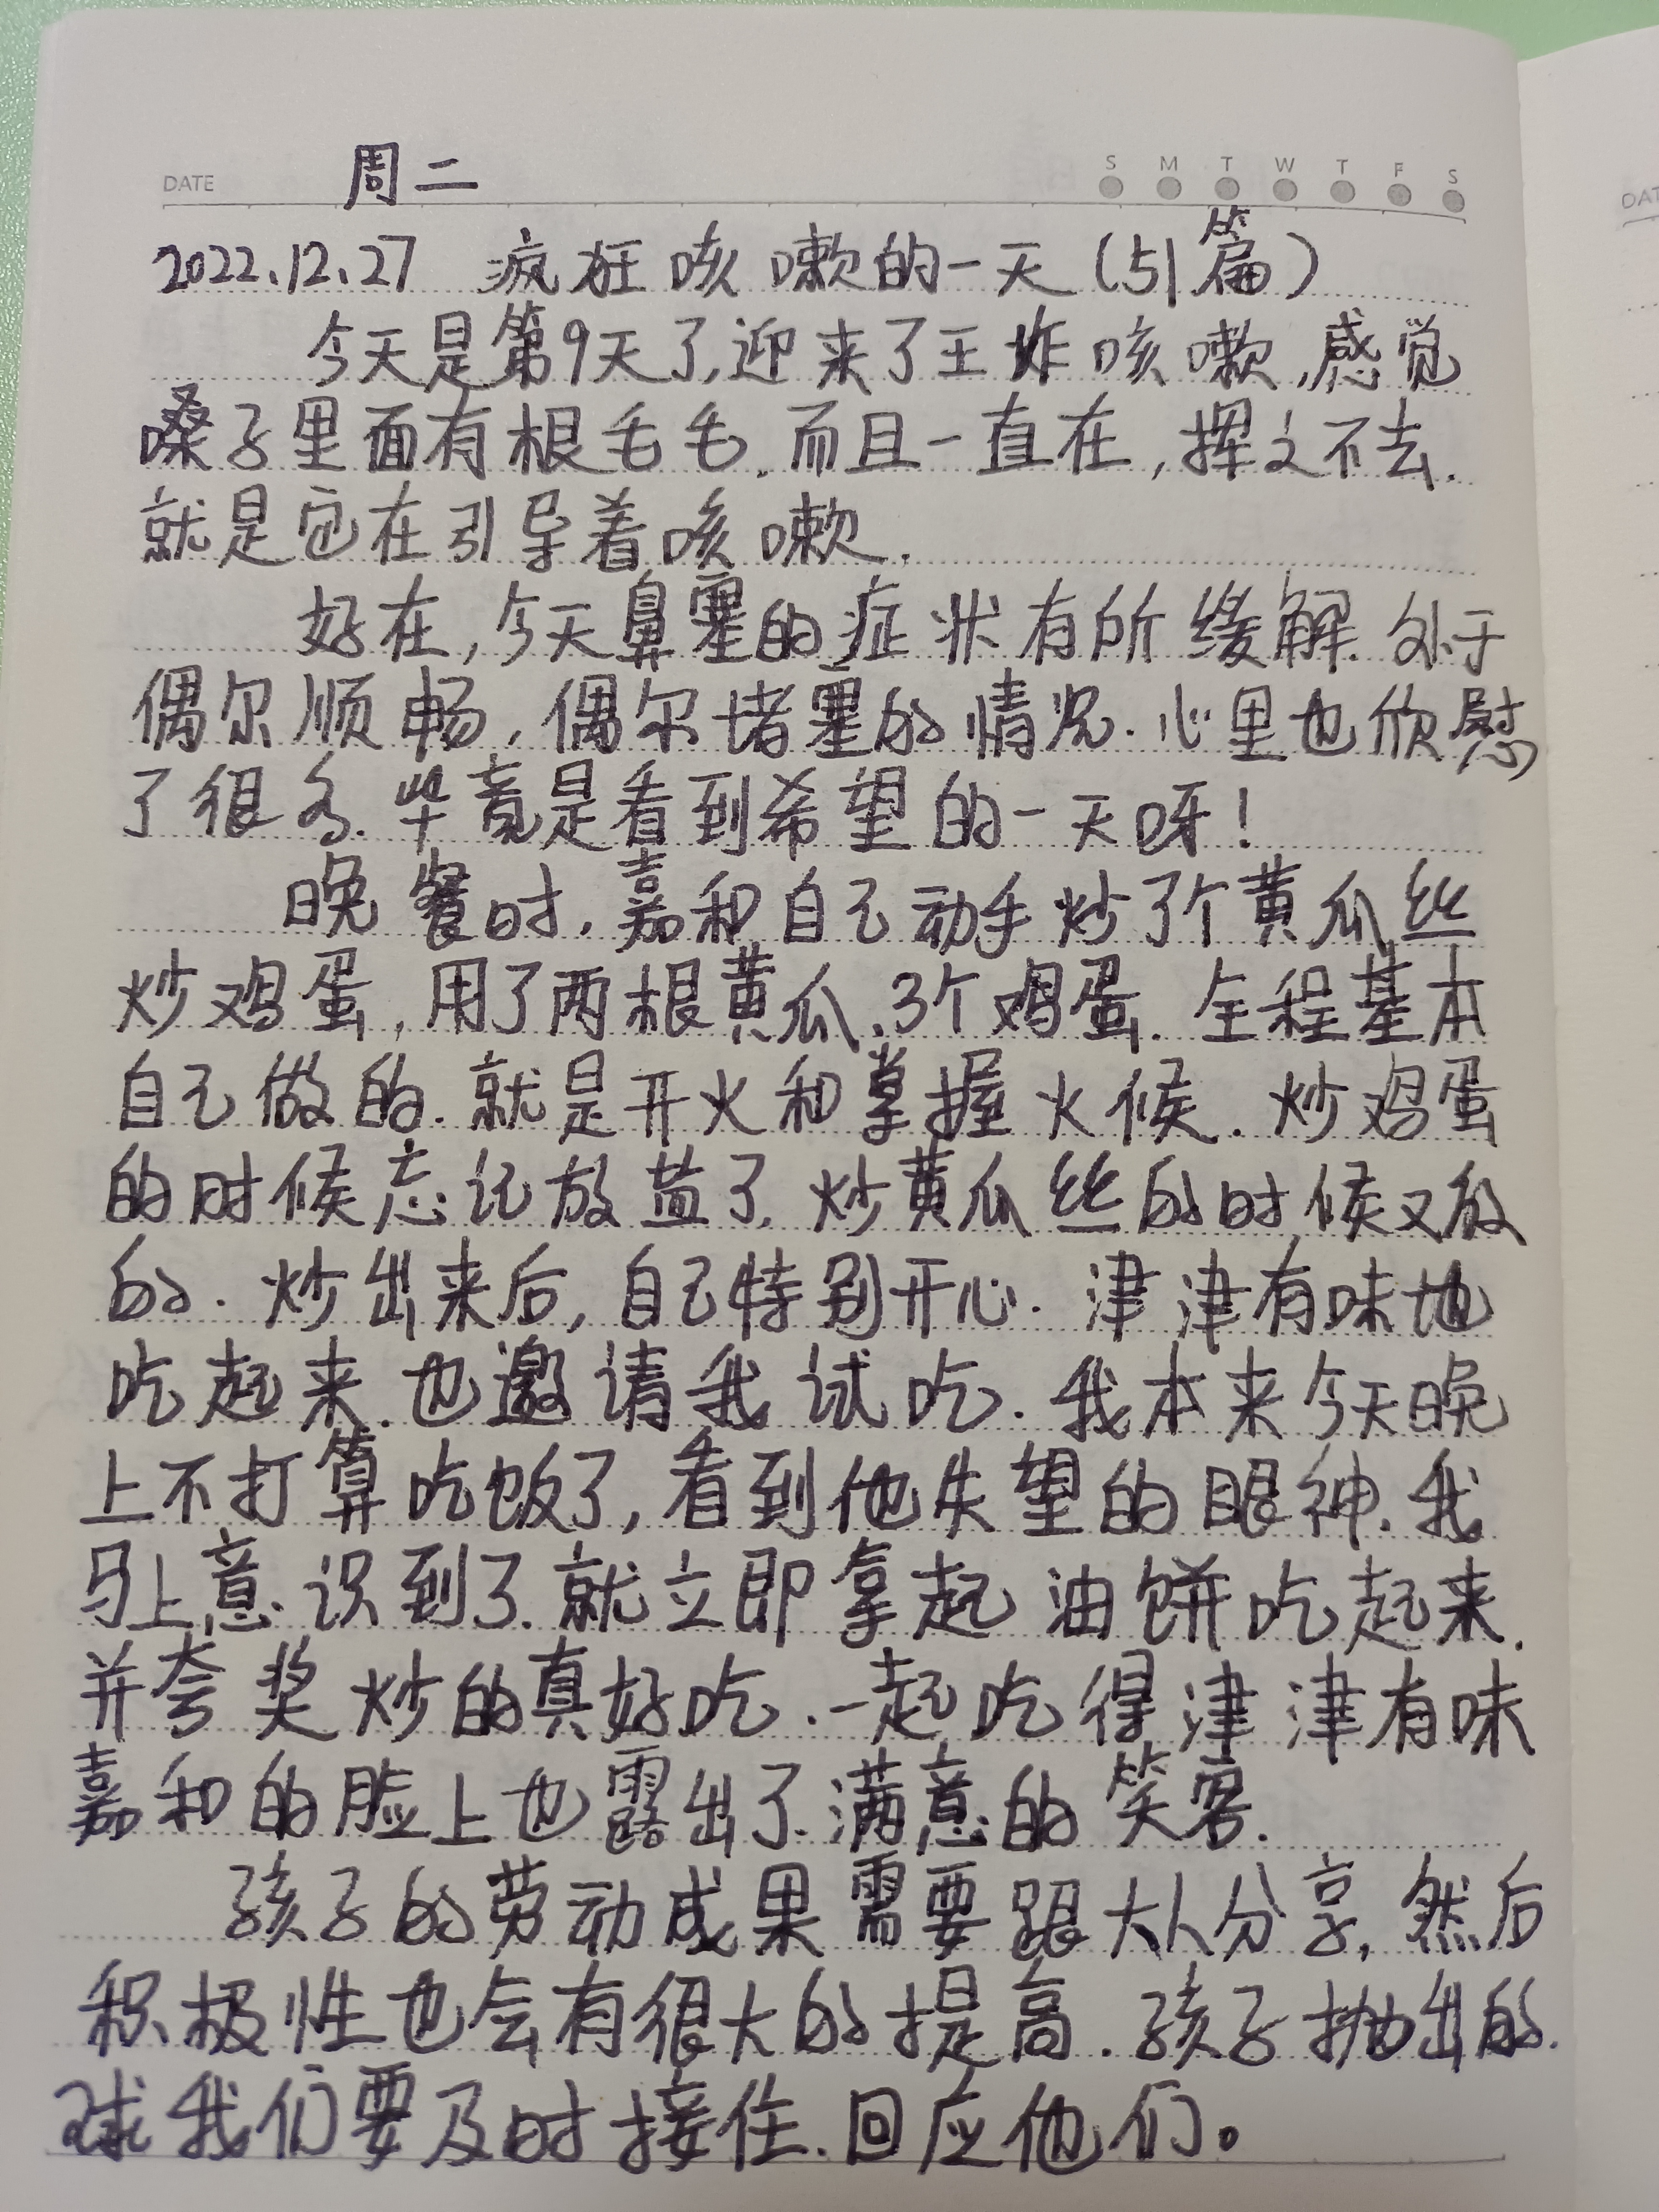 DATE 周二 S M T W T F S
2022.12.27 疯狂咳嗽的一天(51篇)
今天是第9天了,迎来了王炸咳嗽,感觉
嗓子里面有根毛毛.而且一直在,挥之不去.
就是它在引导着咳嗽.
好在,今天鼻塞的症状有所缓解.处于
偶尔顺畅,偶尔堵塞的情况.心里也欣慰
了很多.毕竟是看到希望的一天呀!
晚餐时.嘉和自己动手炒了个黄瓜丝
炒鸡蛋,用了两根黄瓜、3个鸡蛋.全程基本
自己做的.就是开火和掌握火候.炒鸡蛋
的时候忘记放盐了,炒黄瓜丝的时候又放
的.炒出来后,自己特别开心.津津有味地
吃起来.也邀请我试吃.我本来今天晚
上不打算吃饭了,看到他失望的眼神.我
马上意识到了.就立即拿起油饼吃起来.
并夸奖炒的真好吃.一起吃得津津有味
嘉和的脸上也露出了满意的笑容.
孩子的劳动成果需要跟大人分享,然后
积极性也会有很大的提高.孩子抛出的.
球我们要及时接住.回应他们。
DAT